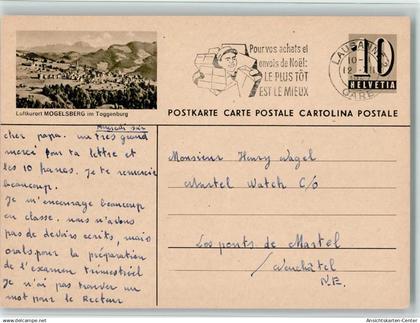 Luftkurort MOGELSBERG im Toggenburg
Pour vos achats et
envois de Noël:
LE PLUS TÔT
EST LE MIEUX
LAUSANNE
10
12
GARE
10
HELVETIA
POSTKARTE CARTE POSTALE CARTOLINA POSTALE
Mercredi soir
cher papa. un très grand
merci pour ta lettre et
les 10 francs. Je te remercie
beaucoup.
Je m'encourage beaucoup
en classe. nous n'avons
pas de devoirs écrits, mais
orals pour la préparation
de l'examen trimestriel
Je n'ai pas trouver un
mot pour le Recteur
Monsieur Henry Nagel
Martel Watch C/o
Les ponts de Martel
Neuchâtel
N.E.
Ansichtskarten-Center